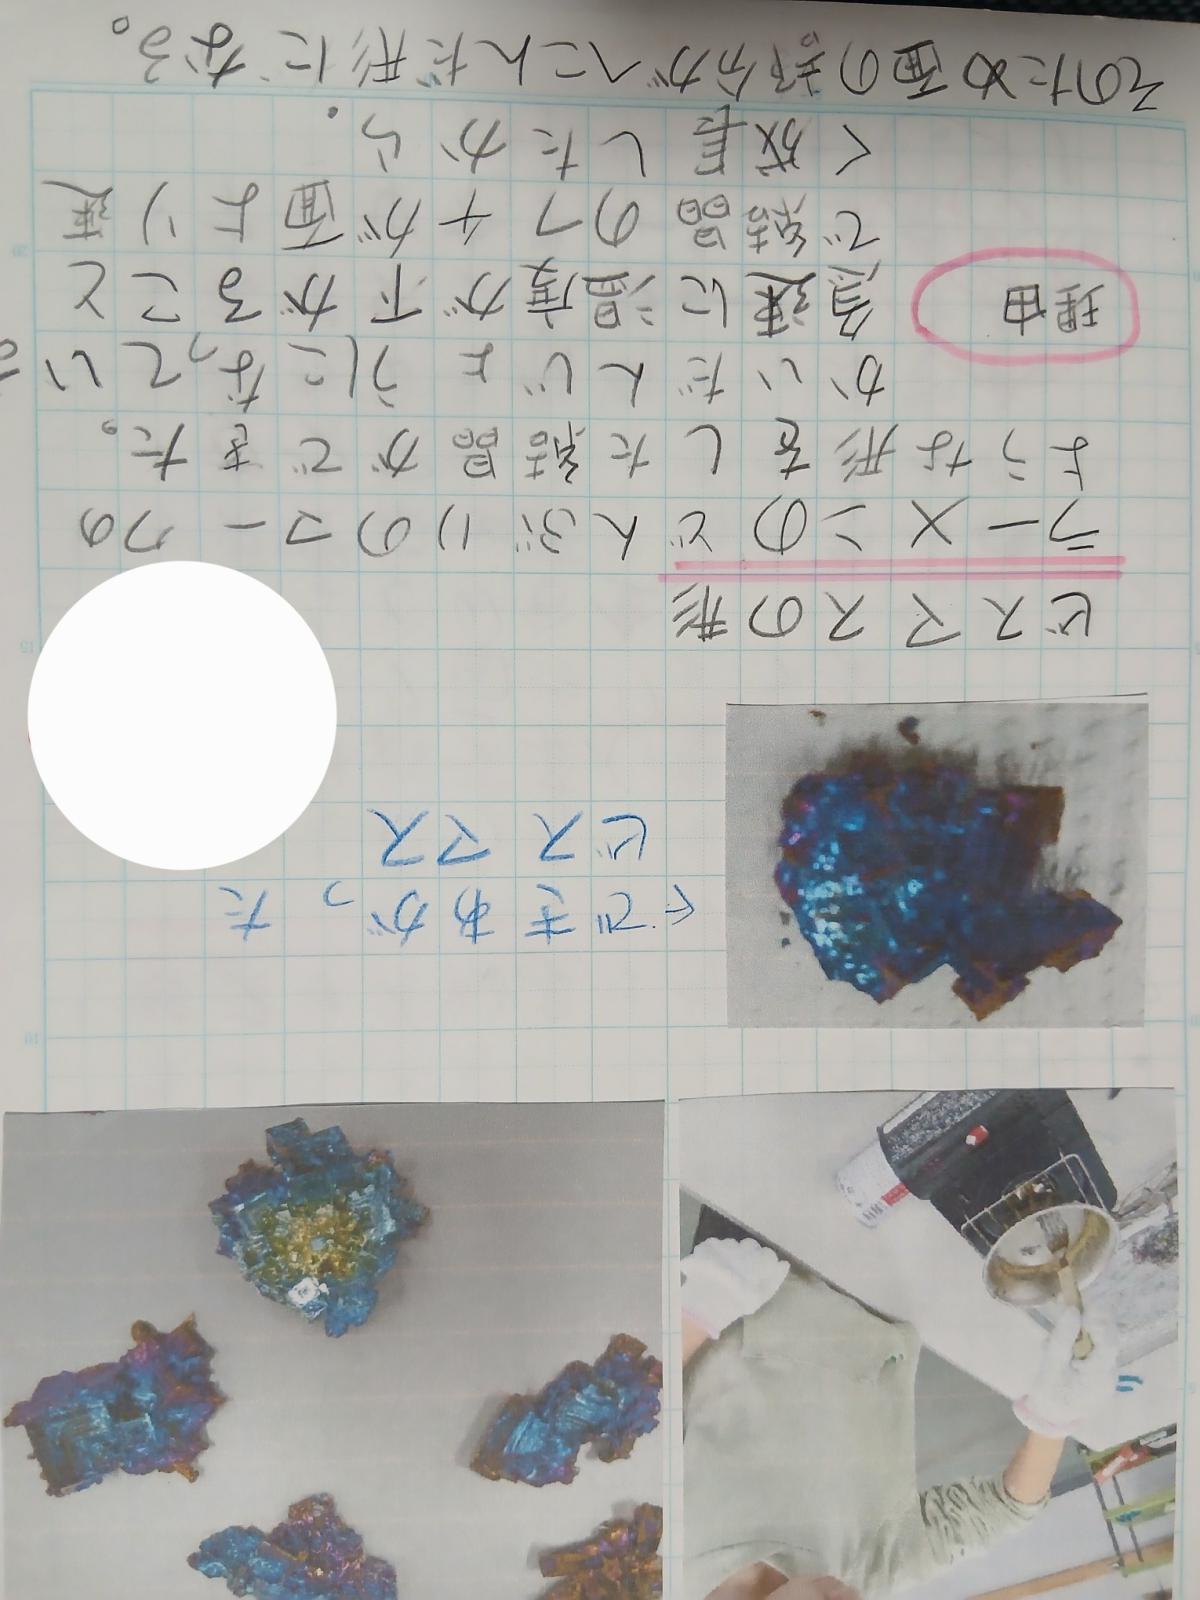 ←できあがった
ビスマス
ビスマスの形
ラーメンのどんぶりのマークの
ような形をした結晶ができた。
かいだんじょうになっている
理由
急速に温度が下がること
で結晶のフチが面より速
く成長したから.
そのため面の部分がへこんだ形になる。